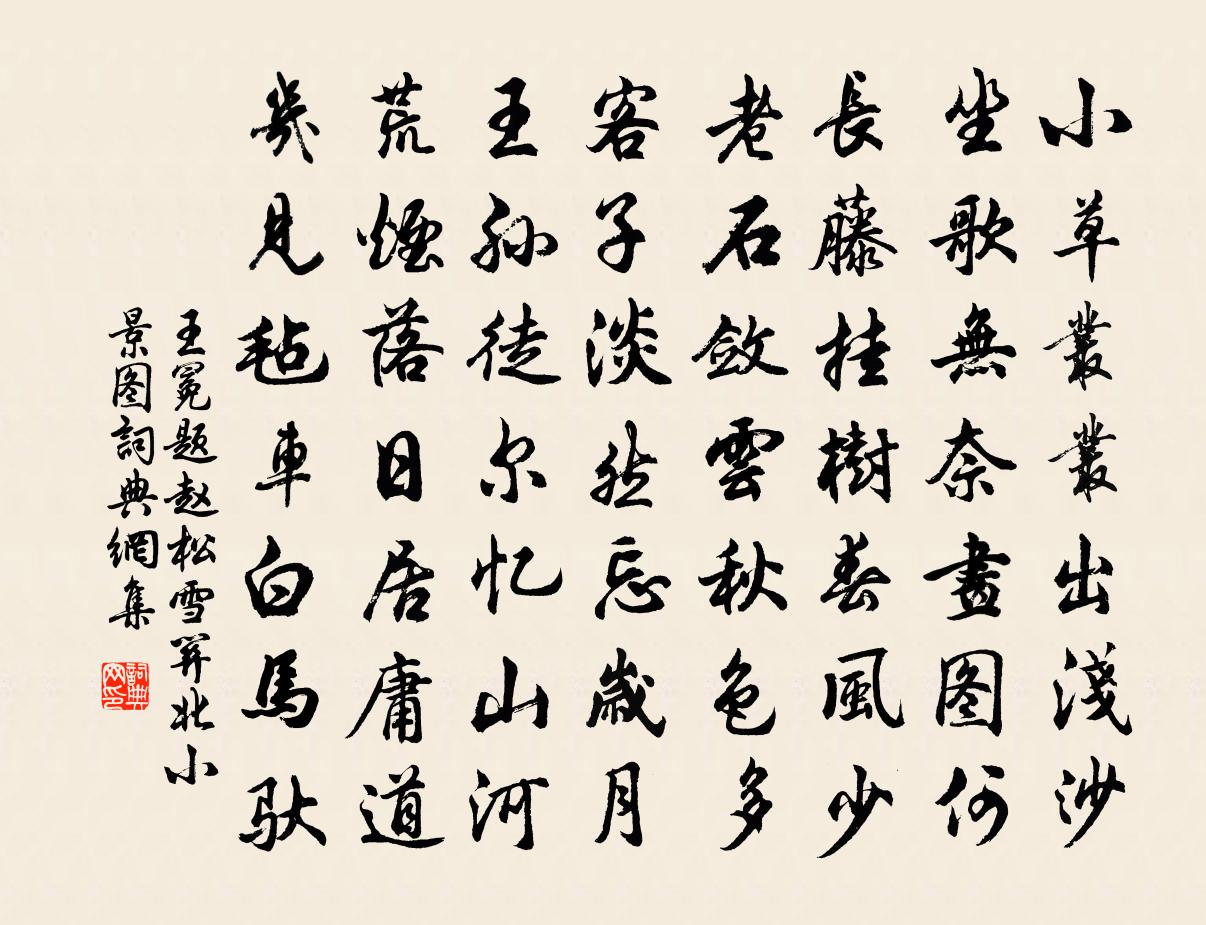 小草叢叢出淺沙
坐歌無奈畫图何
長藤挂樹春風少
老石斂雲秋色多
客子淡然忘歲月
王孙徒尔忆山河
荒煙落日居庸道
幾見毡車白馬馱
王冕题赵松雪𢍆北小
景图詞典網集
詞典
网印